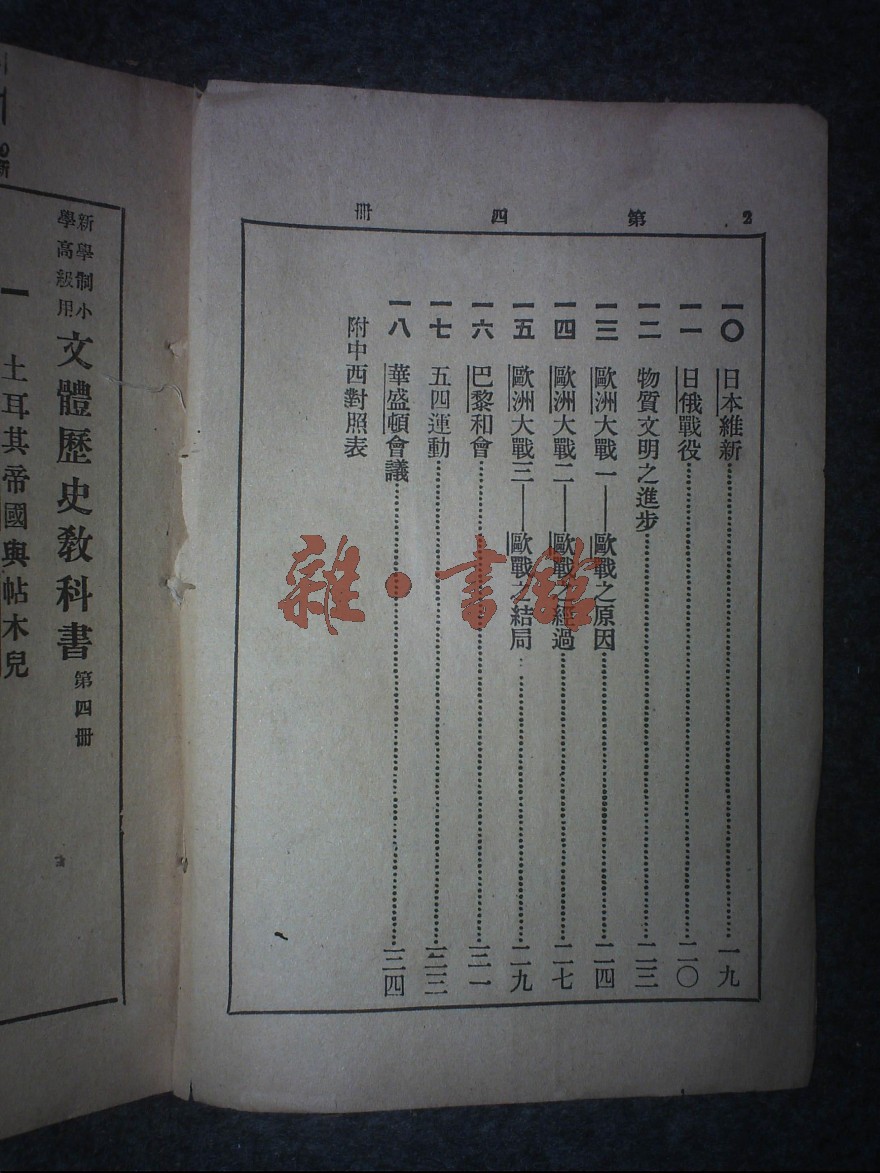 2 第四冊
一〇 日本維新……一九
一一 日俄戰役……二〇
一二 物質文明之進步……二三
一三 歐洲大戰一——歐戰之原因……二四
一四 歐洲大戰二——歐戰之經過……二七
一五 歐洲大戰三——歐戰之結局……二九
一六 巴黎和會……三一
一七 五四運動……三三
一八 華盛頓會議……三四
附中西對照表
雜·書館
新學制小學高級用 文體歷史教科書 第四冊
一 土耳其帝國與帖木兒